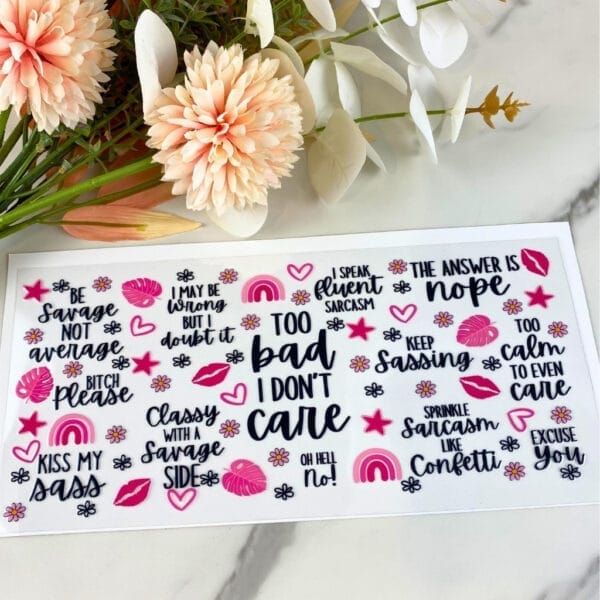 BE
Savage
NOT
average
I MAY BE
Wrong
BUT I
doubt it
I SPEAK
fluent
SARCASM
THE ANSWER IS
nope
TOO
bad
I DON'T
care
KEEP
Sassing
TOO
calm
TO EVEN
CARE
BITCH
Please
Classy
WITH A
Savage
SIDE
SPRINKLE
Sarcasm
LIKE
Confetti
EXCUSE
you
KISS MY
sass
OH HELL
No!